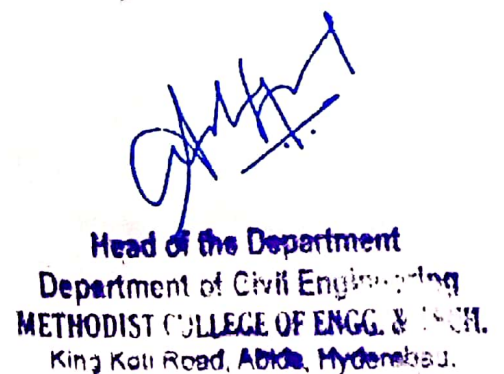 Head of the Department
Department of Civil Engineering
METHODIST COLLEGE OF ENGG. & TECH.
King Koti Road, Abids, Hyderabad.